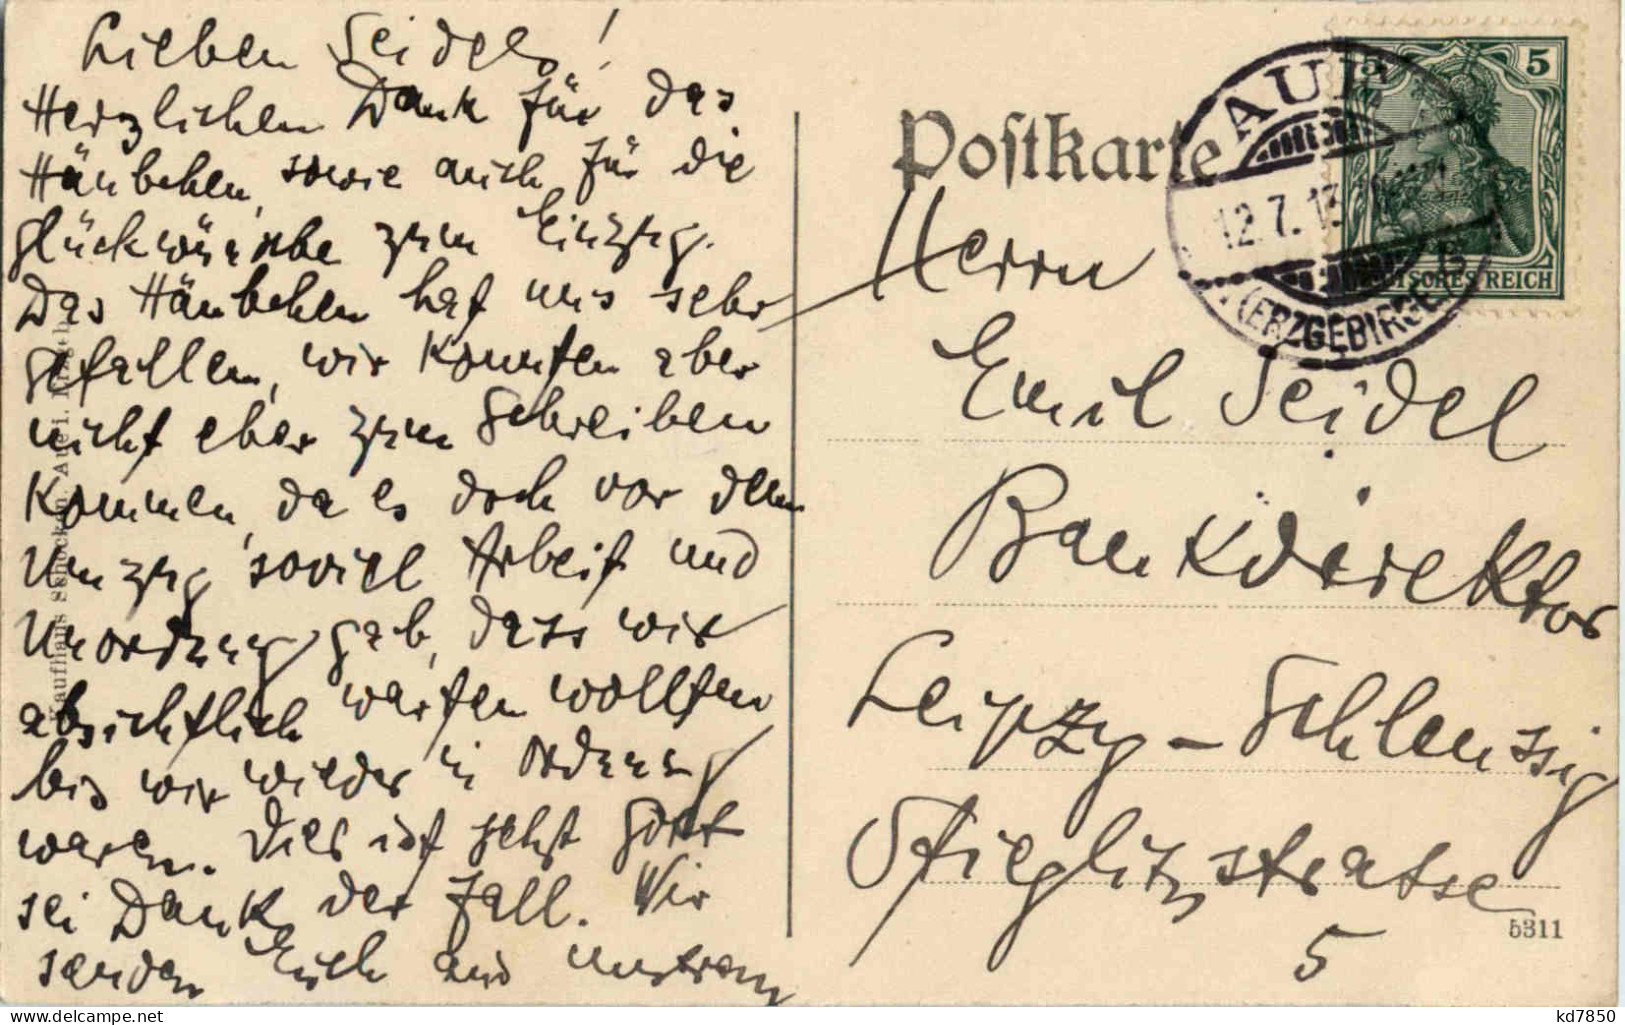 Lieben Seidels!
Herzlichen Dank für das
Häubchen, sowie auch für die
Glückwünsche zum Einzug.
Das Häubchen hat uns sehr
gefallen, wir konnten aber
nicht eher zum Schreiben
kommen, da es doch vor dem
Umzug soviel Arbeit und
Unordnung gab, dass wir
absichtlich warten wollten
bis wir wieder in Ordnung
waren. Dies ist jetzt Gott
sei Dank der Fall. Wir
senden Euch aus unserem
Kaufhaus Schocken, Aue i.
Postkarte
AUE
12.7.13
(ERZGEBIRGE)
5 5
DEUTSCHES REICH
Herrn
Emil Seidel
Bankdirektor
Leipzig-Schleussig
Stieglitzstrasse
5
5311
kd7850